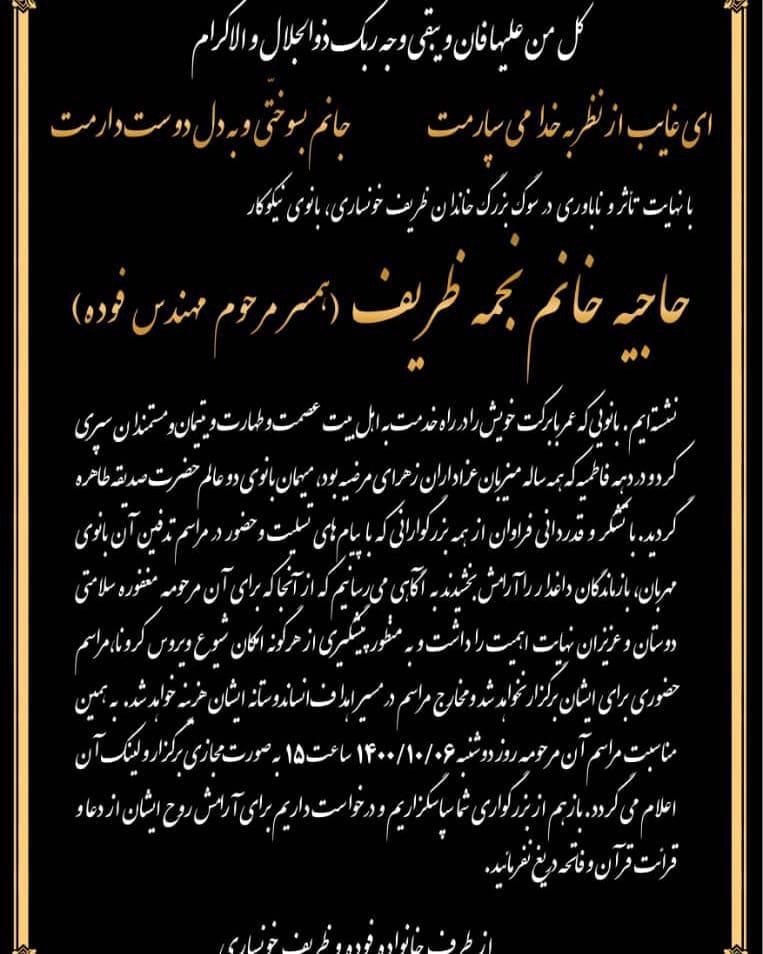 کل من علیها فان و یبقی وجه ربک ذوالجلال و الاکرام
ای غایب از نظر به خدا می سپارمت جانم بسوختی و به دل دوست دارمت
با نهایت تأثر و ناباوری در سوگ بزرگ خاندان ظریف خونساری، بانوی نیکوکار
حاجیه خانم نجمه ظریف (همسر مرحوم مهندس فوده)
نشسته‌ایم. بانویی که عمر بابرکت خویش را در راه خدمت به اهل بیت عصمت و طهارت و یتیمان و مستمندان سپری
کرد و در دهه فاطمیه که همه ساله میزبان عزاداران زهرای مرضیه بود، میهمان بانوی دو عالم حضرت صدیقه طاهره
گردید. با تشکر و قدردانی فراوان از همه بزرگوارانی که با پیام های تسلیت و حضور در مراسم تدفین آن بانوی
مهربان، بازماندگان داغدار را آرامش بخشیدند به آگاهی می‌رسانیم که از آنجا که برای آن مرحومه مغفوره سلامتی
دوستان و عزیزان نهایت اهمیت را داشت و به منظور پیشگیری از هرگونه امکان شیوع ویروس کرونا، مراسم
حضوری برای ایشان برگزار نخواهد شد و مخارج مراسم در مسیر اهداف انساندوستانه ایشان هزینه خواهد شد. به همین
مناسبت مراسم آن مرحومه روز دوشنبه ۱۴۰۰/۱۰/۰۶ ساعت ۱۵ به صورت مجازی برگزار و لینک آن
اعلام می گردد. باز هم از بزرگواری شما سپاسگزاریم و درخواست داریم برای آرامش روح ایشان از دعا و
قرائت قرآن و فاتحه دریغ نفرمائید.
از طرف خانواده فوده و ظریف خونساری